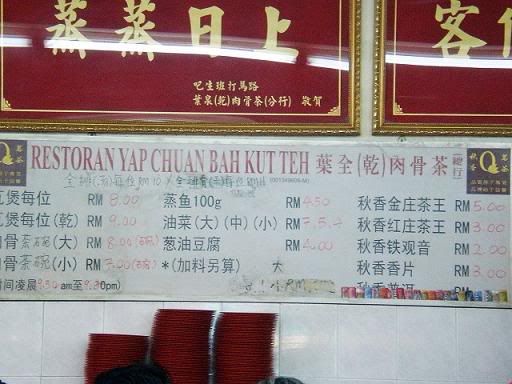 蒸蒸日上
吧生班打馬路
葉泉(乾)肉骨茶(分行) 敬賀
RESTORAN YAP CHUAN BAH KUT TEH 葉全(乾)肉骨茶
煲每位 RM 8.00
煲每位(乾) RM 9.00
肉骨茶碗(大) RM 8.00
骨茶碗(小) RM 7.00
时间凌晨9.30am至9.30pm)
蒸鱼100g RM 4.50
油菜(大)(中)(小) RM 7.5.4
葱油豆腐 RM 4.00
*(加料另算) 大
小 RM
秋香金庄茶王 RM 5.00
秋香红庄茶王 RM 3.00
秋香铁观音 RM 2.00
秋香香片 RM 3.00
秋香普洱